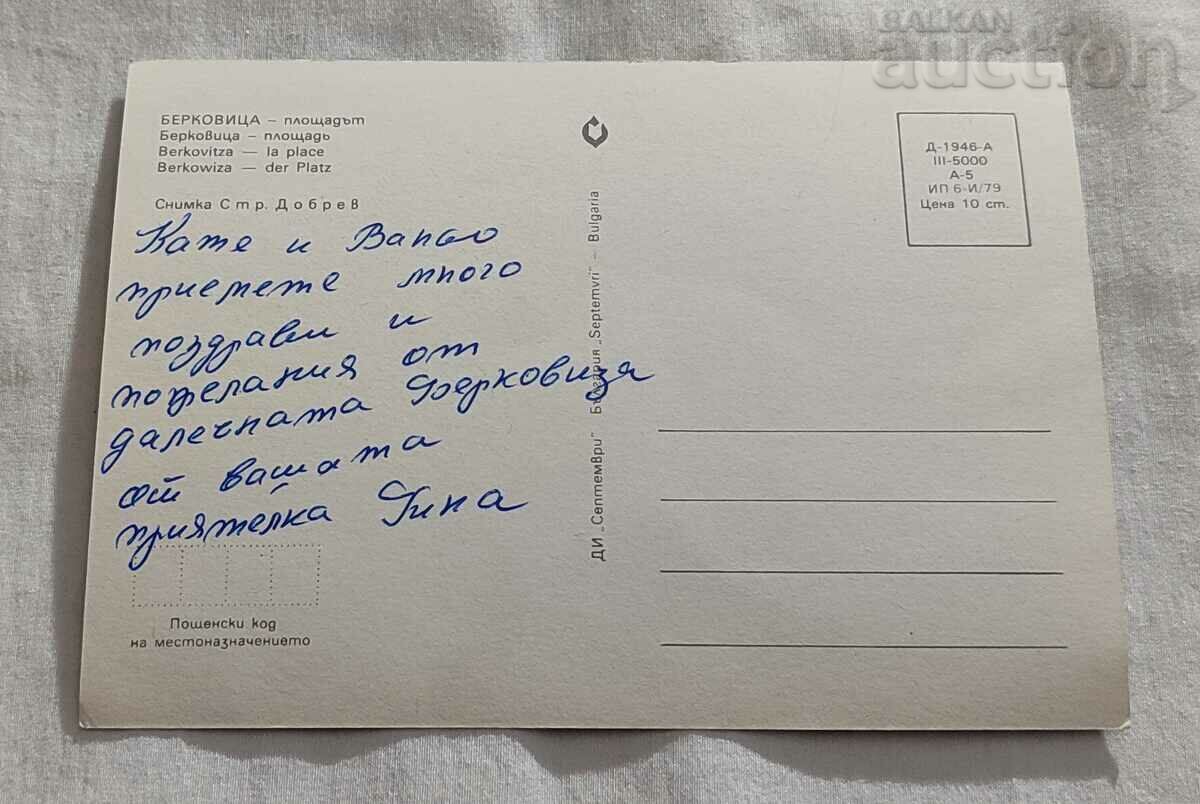 BALKAN
auction
БЕРКОВИЦА – площадът
Берковица – площадь
Berkovitza — la place
Berkowiza — der Platz
Снимка Стр. Добрев
Кате и Ваньо
приемете много
поздрави и
пожелания от
далечната Берковица
от вашата
приятелка Гина
Пощенски код
на местоназначението
ДИ „Септември" България „Septemvri" – Bulgaria
Д-1946-А
III-5000
А-5
ИП 6-И/79
Цена 10 ст.